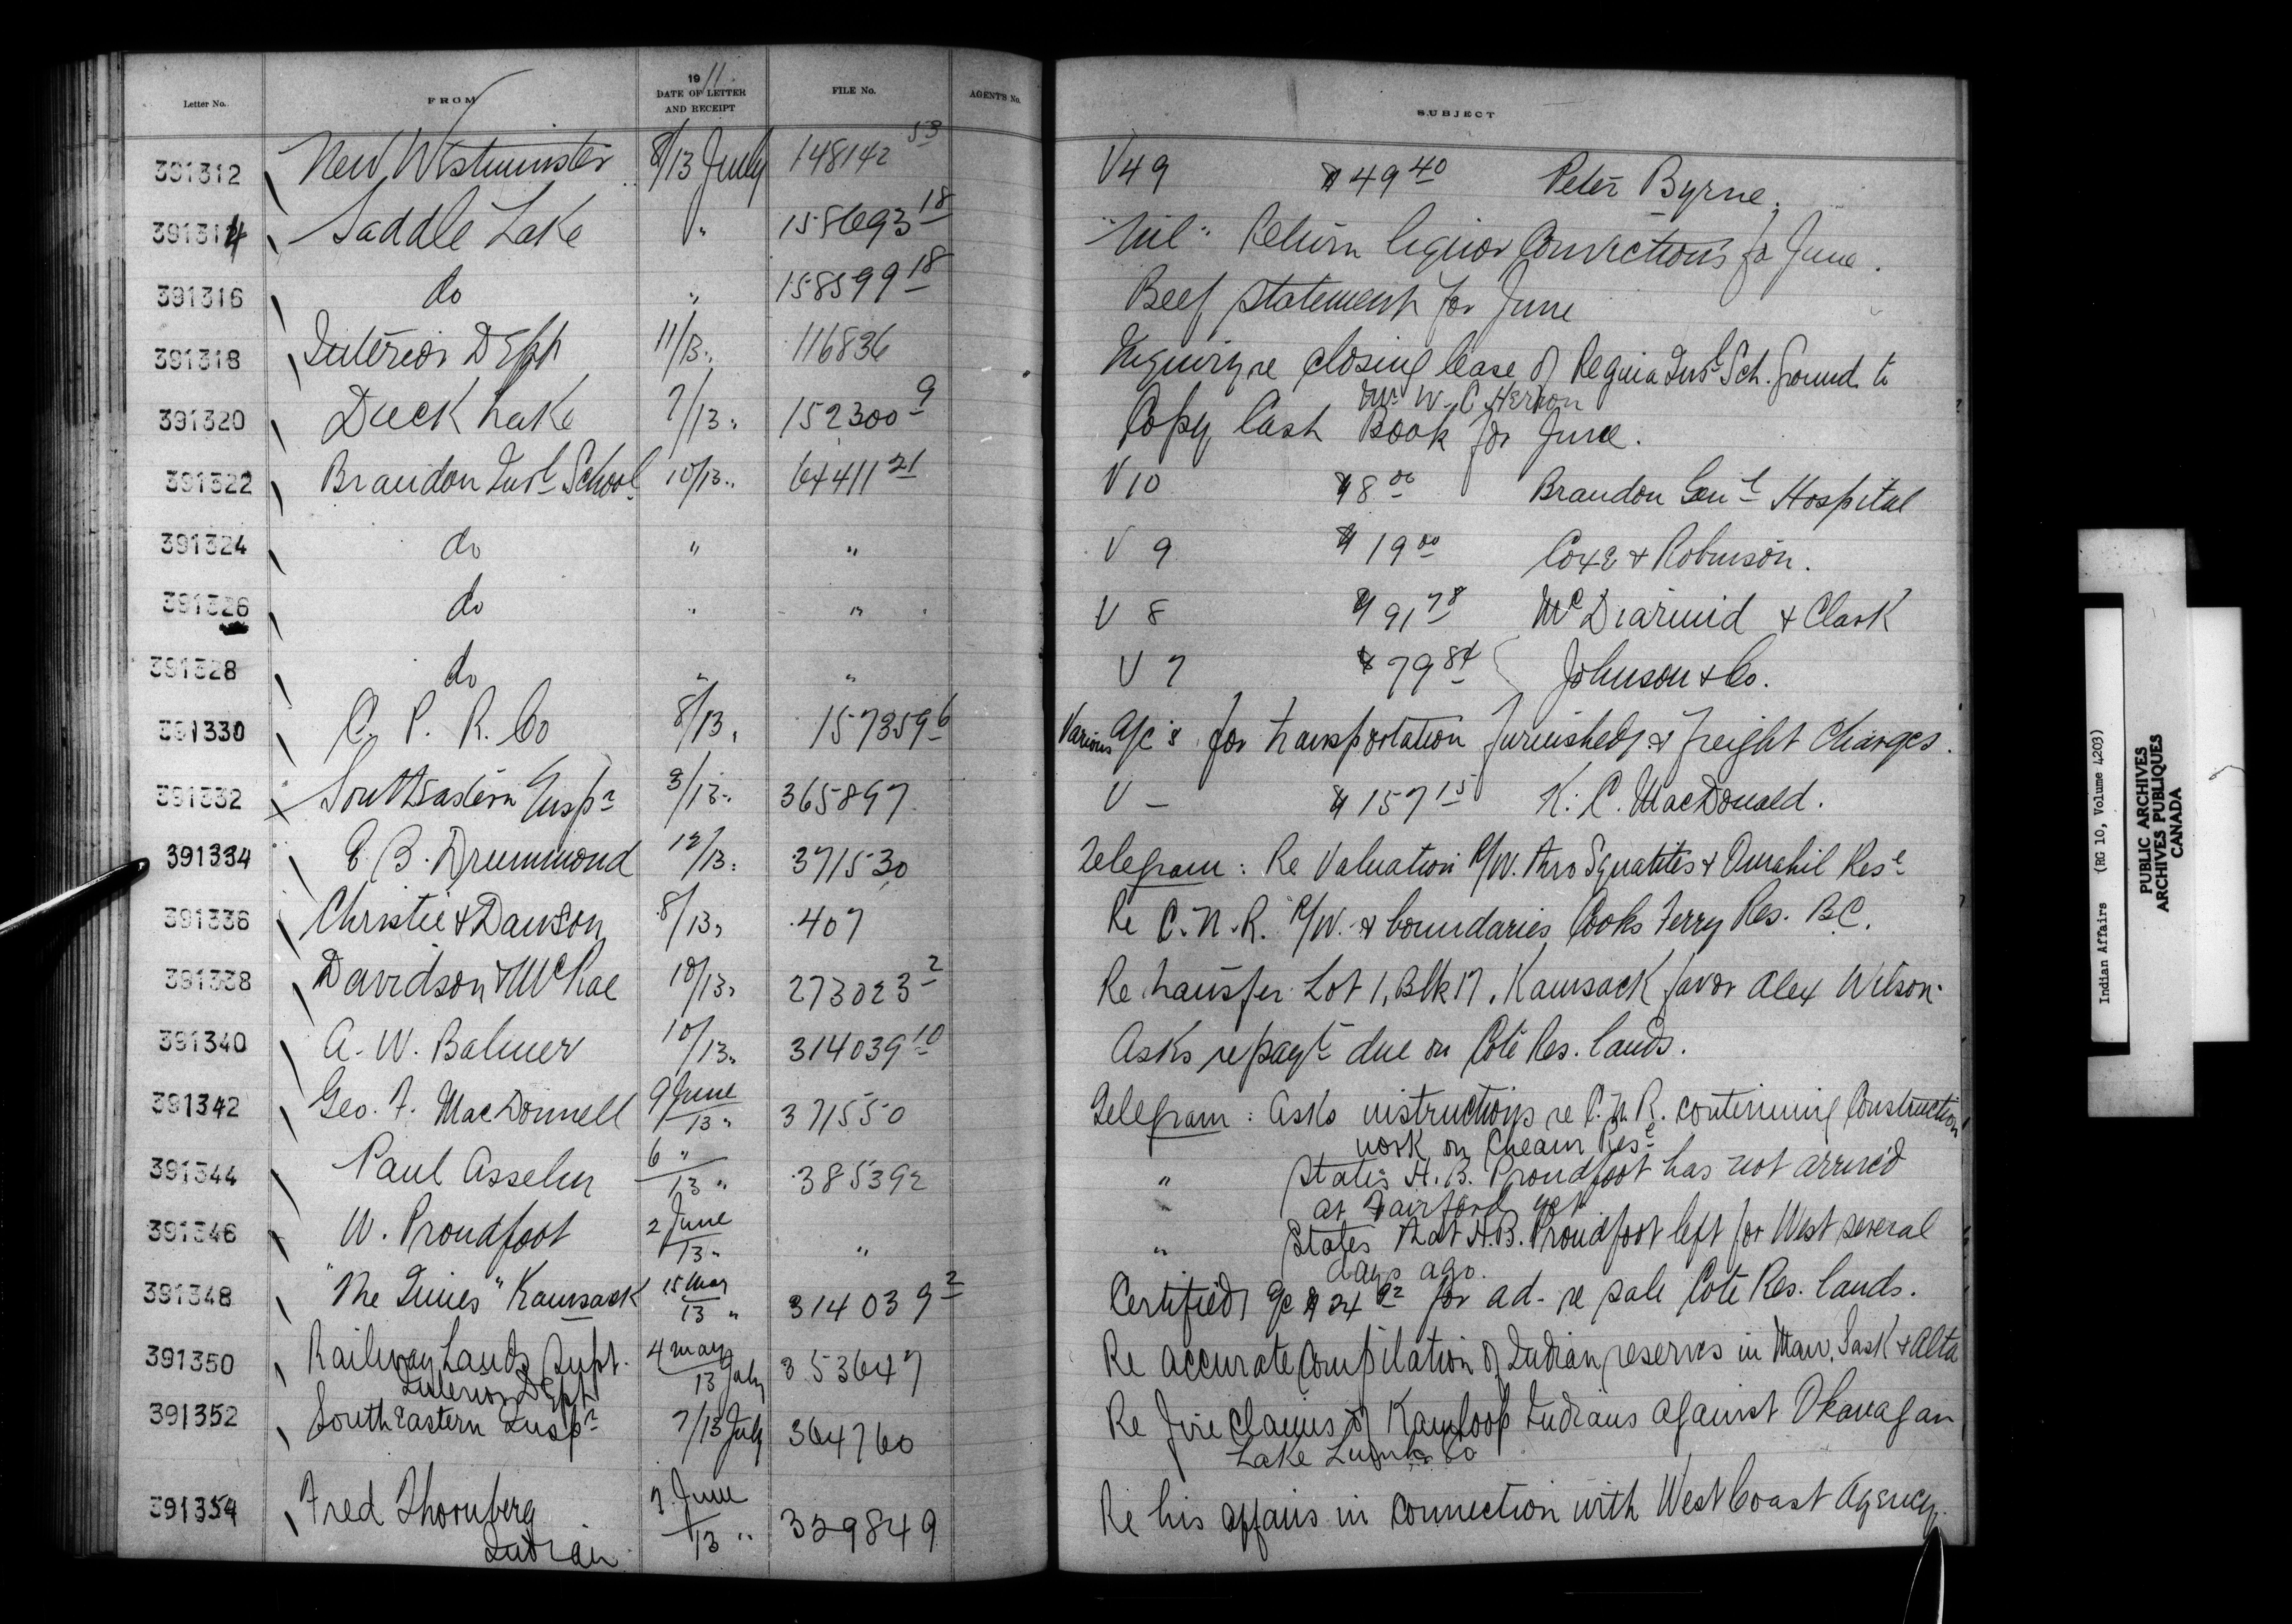 Letter No. FROM 1911 DATE OF LETTER AND RECEIPT FILE No. AGENT'S No. SUBJECT
391312 New Westminster 8/13 July 148142 53 V 49 $49 40 Peter Byrne.
391314 Saddle Lake " 158693 18 "Nil" Return liquor Convictions for June.
391316 do " 158599 18 Beef statement for June
391318 Interior Dept 11/13 " 116836 Inquiry re closing lease of Regina Indl Sch. ground to
Mr W. C. Herron
391320 Duck Lake 7/13 " 152300 9 Copy Cash Book for June.
391322 Brandon Indl School 10/13 " 64411 21 V 10 $8 00 Brandon Genl Hospital
391324 do " " V 9 $19 00 Coxe & Robinson.
391326 do " " V 8 $91 78 McDiarmid & Clark
391328 do " " V 7 $79 84 Johnson & Co.
391330 C. P. R. Co 8/13 " 157359 6 Various a/c's for transportation furnished & freight charges.
391332 South Eastern Inspr 3/13 " 365897 V - $157 15 K. C. MacDonald.
391334 E. B. Drummond 12/13 " 371530 Telegram : Re Valuation R/W. thro Squatits & Omahil Rese
391336 Christie & Dawson 8/13 " 407 Re C. N. R. R/W. & boundaries Cooks Ferry Res. B.C.
391338 Davidson & McRae 10/13 " 273023 2 Re transfer Lot 1, Blk 17, Kamsack favor Alex Wilson.
391340 A. W. Balmer 10/13 " 314039 10 Asks repayt due on Cote Res. lands.
391342 Geo. F. MacDonnell 9 June/13 " 371550 Telegram : Asks instructions re C. N. R. continuing Construction
work on Cheam Rese
391344 Paul Asselin 6 "/13 " 385392 " States H. B. Proudfoot has not arrived
at Fairford yet
391346 W. Proudfoot 2 June/13 " " " States that H.B. Proudfoot left for West several
days ago.
391348 "The Times" Kamsack 15 May/13 " 314039 2 Certified a/c $24 92 for ad- re sale Cote Res. lands.
391350 Railway Lands Supt. 4 May/13 July 353647 Re accurate Compilation of Indian reserves in Man, Sask & Alta
Interior Dept
391352 South Eastern Inspr 7/13 July 364760 Re fire claims of Kamloops Indians against Okanagan
Lake Lumber Co
391354 Fred Thornberg 7 June/13 " 329849 Re his affairs in connection with West Coast Agency.
Indian
Indian Affairs (RG 10, Volume 4203)
PUBLIC ARCHIVES
ARCHIVES PUBLIQUES
CANADA